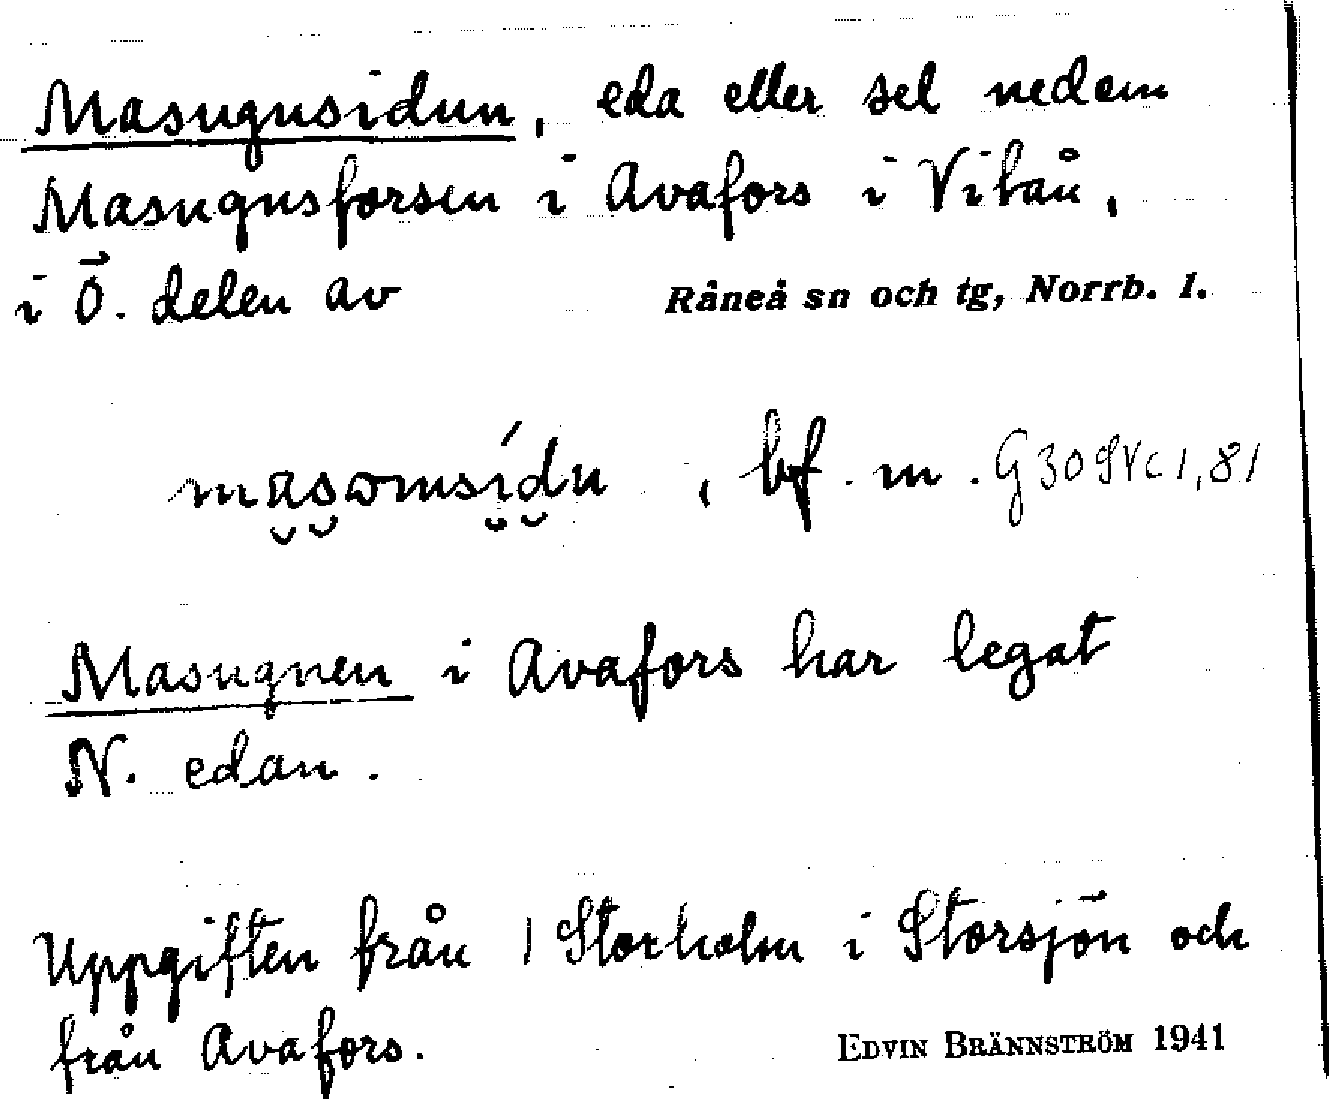 Masugnsidun, eda eller sel nedom
Masugnsforsen i Avafors i Vitån,
i Ö. delen av Råneå sn och tg, Norrb. l.
, bf. m.
Masugnen i Avafors har legat
N. edan.
Uppgiften från Storholm i Storsjön och
från Avafors.
EDVIN BRÄNNSTRÖM 1941